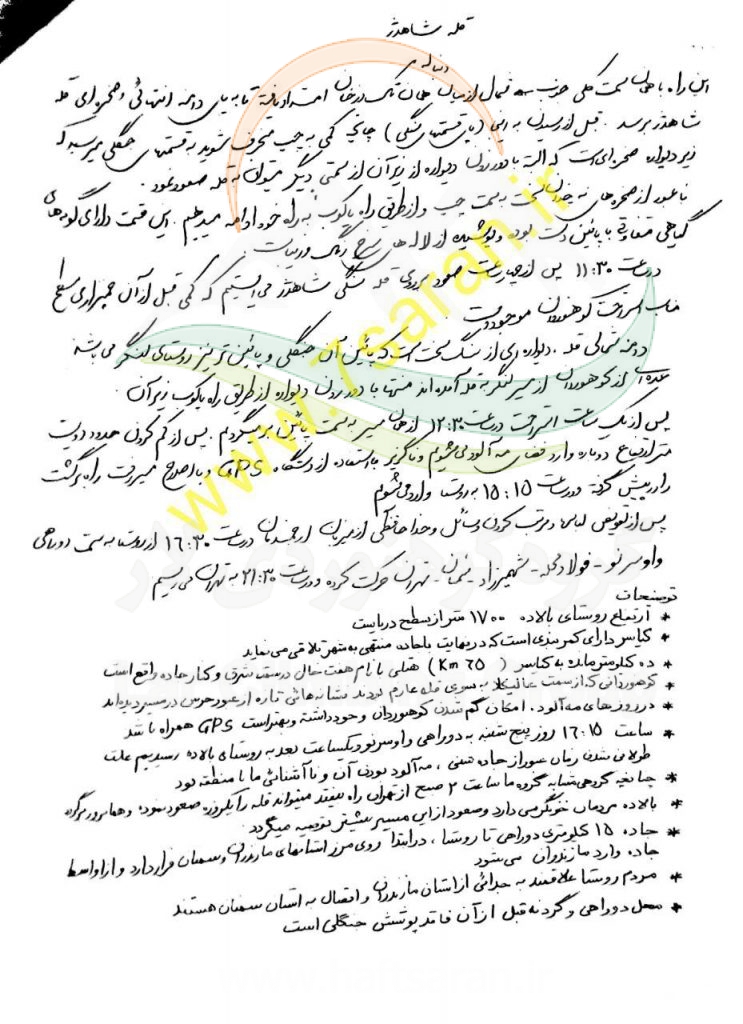 قله شاهدژ
دنباله
این راه با همان سمت کلی جنوب به شمال از میان همان تک درختان امتداد یافته تا به پای دامنه انتهائی و صخره ای قله
شاهدژ برسد. قبل از رسیدن به این (پای قسمتهای سنگی) چنانچه کمی به چپ منحرف شوید به قسمتهای جنگلی میرسید که
زیر دیواره صخره ای است که البته با دور زدن دیواره از زیر آن از سمتی دیگر میتوان به قله صعود نمود.
با عبور از صخره های نه چندان سخت به سمت چپ و از طریق راه پاکوب به راه خود ادامه میدهیم. این قسمت دارای گونه های
گیاهی متفاوتی با پائین دست بوده و پوشیده از لاله های سرخ رنگ وزیباست.
در ساعت ۱۱:۳۰ پس از چهار ساعت صعود بر روی قله سنگی شاهدژ می ایستیم که کمی قبل از آن چمنزاری مسطح
مناسب استراحت کوهنوردان موجود است.
دامنه شمالی قله، دیواره ای از سنگ سخت است که پائین آن جنگلی و پائین تر نیز روستای لنگر می باشد
عده ای از کوهنوردان از مسیر لنگر به قله آمده اند منتها با دور زدن دیواره از طریق راه پاکوب زیر آن.
پس از یک ساعت استراحت در ساعت ۱۲:۳۰ از همان مسیر به سمت پائین بر میگردیم. پس از کم کردن حدود دویست
متر ارتفاع دوباره وارد فضای مه آلود می شویم و ناگزیر با استفاده از دستگاه GPS و با اصلاح مسیر رفت راه برگشت
را در پیش گرفته و در ساعت ۱۵:۱۵ به روستا وارد می شویم
پس از تعویض لباسها و مرتب کردن وسائل و خداحافظی از میزبان ارجمندمان در ساعت ۱۶:۳۰ از روستا به سمت دوراهی
واوسر نو - فولاد محله - شهمیرزاد - سمنان - تهران حرکت کرده و در ساعت ۲۱:۳۰ به تهران می رسیم
توضیحات
* ارتفاع روستای بالاده ۱۷۰۰ متر از سطح دریاست
* کیاسر دارای کمربندی است که در نهایت با جاده منتهی به شهر تلاقی می نماید
* ده کیلومتر مانده به کیاسر (Km 65) هتلی با نام هفت خال در سمت شرق و کنار جاده واقع است
* کوهنوردانی که از سمت به سوی قله عازم بودند نشانه هائی تازه از عبور خرس در مسیر دیده اند
* در روزهای مه آلود، امکان گم شدن کوهنوردان وجود داشته و بهتر است GPS همراه باشد
* ساعت ۱۶:۱۵ روز پنج شنبه به دوراهی واوسر نو و یکساعت بعد به روستای بالاده رسیدیم علت
طولانی شدن زمان عبور از جاده ، مه آلود بودن آن و نا آشنائی ما با منطقه بود
* چنانچه گروهی مشابه گروه ما ساعت ۲ صبح از تهران راه بیفتد میتواند قله را یکروزه صعود نموده و همانروز برگردد
* بالاده مردمان خونگرمی دارد و صعود از این مسیر بیشتر توصیه میگردد
* جاده ۱۵ کیلومتری دوراهی تا روستا، در ابتدا روی مرز استانهای مازندران و سمنان قرار دارد و از اواسط
جاده وارد مازندران می شود
* مردم روستا علاقمند به جدائی از استان مازندران و اتصال به استان سمنان هستند
* محل دوراهی و گردنه قبل از آن فاقد پوشش جنگلی است
www.7saran.ir
www.haftsaran.ir